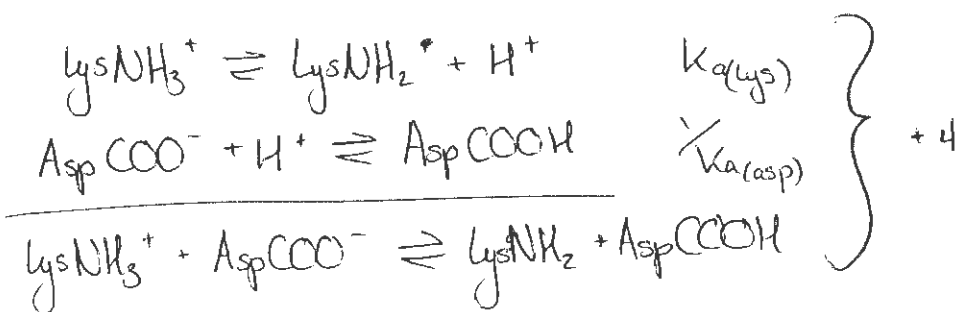 LysNH₃⁺ ⇌ LysNH₂• + H⁺ Ka(lys)
AspCOO⁻ + H⁺ ⇌ AspCOOH 1/Ka(asp)
+4
LysNH₃⁺ + AspCOO⁻ ⇌ LysNH₂ + AspCOOH